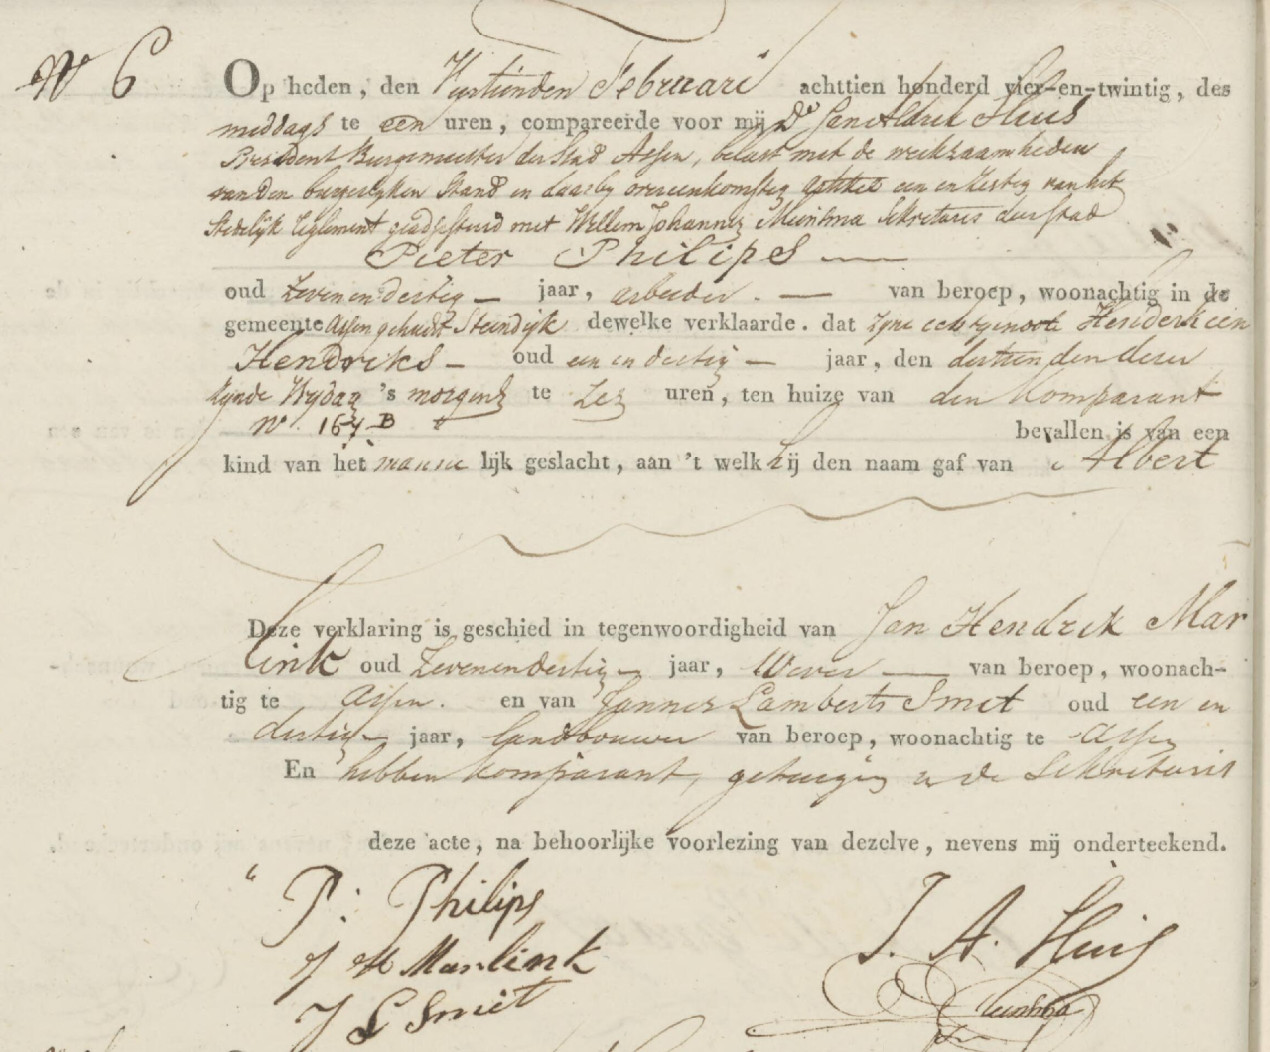 N° 6
Op heden, den Vyftienden Februari achttien honderd vier-en-twintig, des
middags te een uren, compareerde voor mij Dr Jan Aldrik Huis
President Burgemeester der Stad Assen, belast met de werkzaamheden
van den burgerlyken Stand en daarby overeenkomstig artikel een en zestig van het
Stedelijk Reglement geadsisteerd met Willem Johannes Sekretaris der Stad
Pieter Philips
oud zevenendertig jaar, arbeider van beroep, woonachtig in de
gemeente Assen gehucht Steendijk dewelke verklaarde. dat zyne echtgenoote Henderkien
Hendriks oud een en dertig jaar, den dertienden dezer
Vrydag 's morgens te zes uren, ten huize van den Komparant
N° 167 B bevallen is van een
kind van het manne lijk geslacht, aan 't welk hij den naam gaf van Albert
Deze verklaring is geschied in tegenwoordigheid van Jan Hendrik Mar
link oud zevenendertig jaar, Wever van beroep, woonach-
tig te Assen. en van Jannes Lamberts Smit oud een en
dertig jaar, landbouwer van beroep, woonachtig te Assen
En hebben komparant, getuigen en de Sekretaris
deze acte, na behoorlijke voorlezing van dezelve, nevens mij onderteekend.
P: Philips
J. A. Huis
J H Marlink
J L Smit